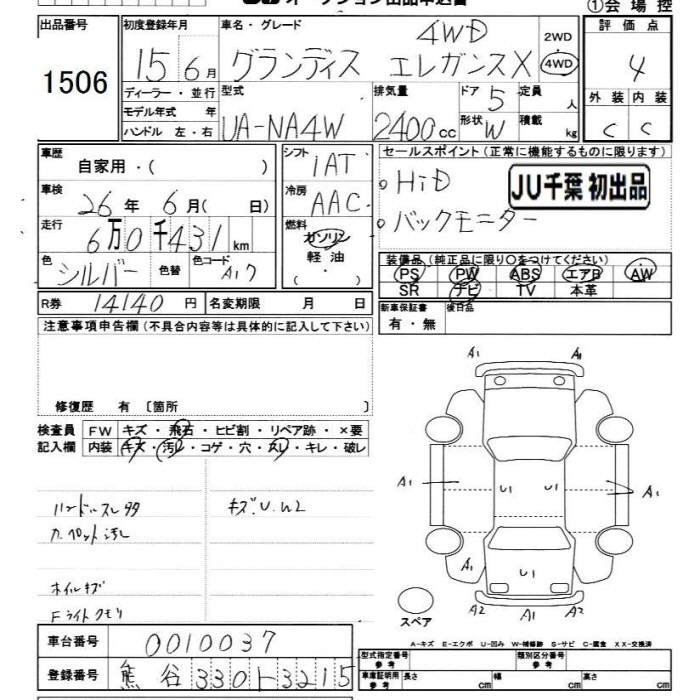 オークション出品申込書
①会場控
出品番号
1506
初度登録年月
15 6月
車名・グレード
4WD
グランディス エレガンスX
2WD
4WD
評価点
4
外装 内装
C C
ディーラー・並行
モデル年式 年
ハンドル 左・右
型式
UA-NA4W
排気量
2400cc
ドア 5
形状 W
定員 人
積載 kg
車歴
自家用・( )
車検
26年 6月( 日)
走行
6万0千431km
色
シルバー
色替
色コード
A17
シフト
1AT
冷房
AAC
燃料
ガソリン
軽油
・
( )
セールスポイント(正常に機能するものに限ります)
・HiD
・バックモニター
JU千葉 初出品
装備品(純正品に限り○をつけてください)
PS PW ABS エアB AW
SR ナビ TV 本革
R券 14140円 名変期限 月 日
新車保証書
有・無
後日品
注意事項申告欄(不具合内容等は具体的に記入して下さい)
修復歴 有 〔箇所 〕
検査員
記入欄
FW キズ・飛石・ヒビ割・リペア跡・×要
内装 キズ・汚レ・コゲ・穴・スレ・キレ・破レ
ハンドルスレ
カーペット汚レ
キズ.U.W2
ホイルキズ
Fライトクモリ
A1 A1
A1 U1 U1 A1
A1 U1 A1
A2 A1 A2
スペア
A-キズ E-エクボ U-凹み W-補修跡 S-サビ C-腐食 XX-交換済
車台番号 0010037
登録番号 熊谷 330ト3215
型式指定番号
参考
類別区分番号
参考
車庫証明用
参考
長さ cm 幅 cm 高さ cm